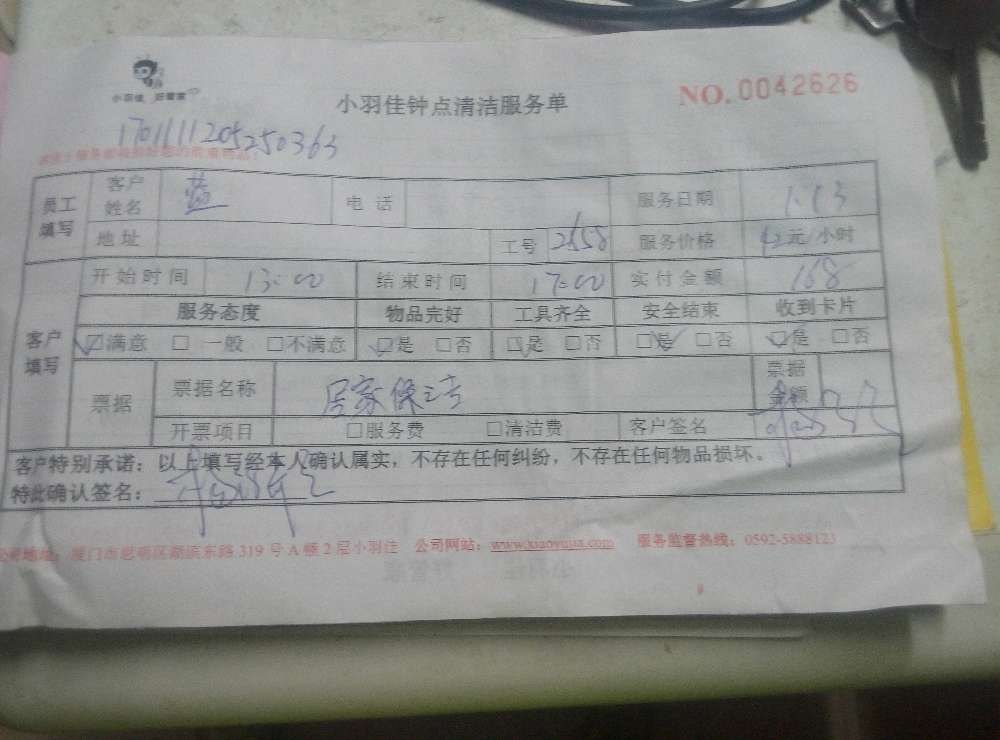 小羽佳 好管家
小羽佳钟点清洁服务单
NO. 0042626
170111205250363
员工填写 客户姓名 蓝 电话 服务日期 1.13
地址 工号 2658 服务价格 42元/小时
客户填写 开始时间 13:00 结束时间 17:00 实付金额 168
服务态度 物品完好 工具齐全 安全结束 收到卡片
☑满意 □一般 □不满意 ☑是 □否 ☑是 □否 ☑是 □否 ☑是 □否
票据 票据名称 居家保洁 票据金额
开票项目 □服务费 □清洁费 客户签名
客户特别承诺：以上填写经本人确认属实，不存在任何纠纷，不存在任何物品损坏。
特此确认签名：
公司地址：厦门市思明区湖滨东路319号A幢2层小羽佳 公司网站：www.xiaoyujia.com 服务监督热线：0592-5888123